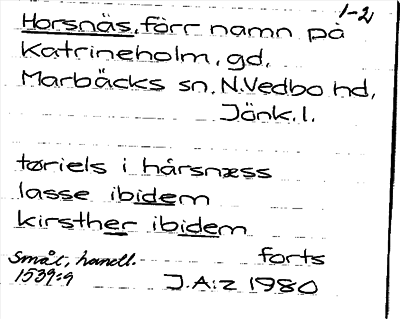 1-2
Horsnäs, förr namn på
Katrineholm, gd,
Marbäcks sn, N. Vedbo hd,
Jönk. l.
tøriels i hårsnæss
lasse ibidem
kirsther ibidem
Smål, handl.
forts
1539:9
J.A:z 1980